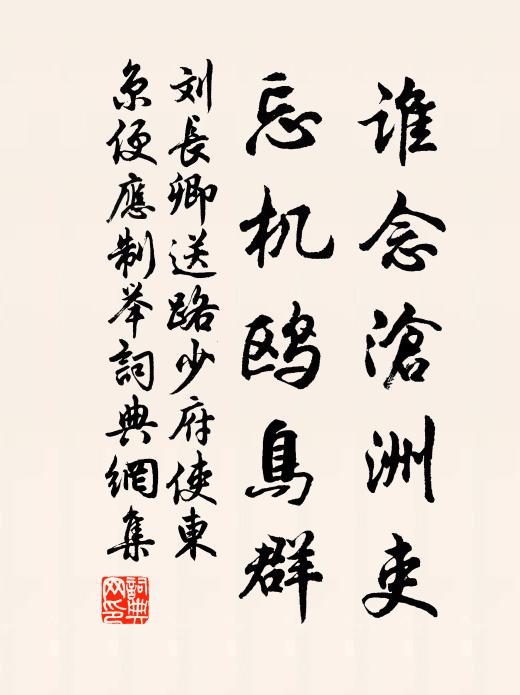 谁念滄洲吏
忘机鸥鳥群
刘長卿送路少府使東
京便應制举詞典網集
詞典網印